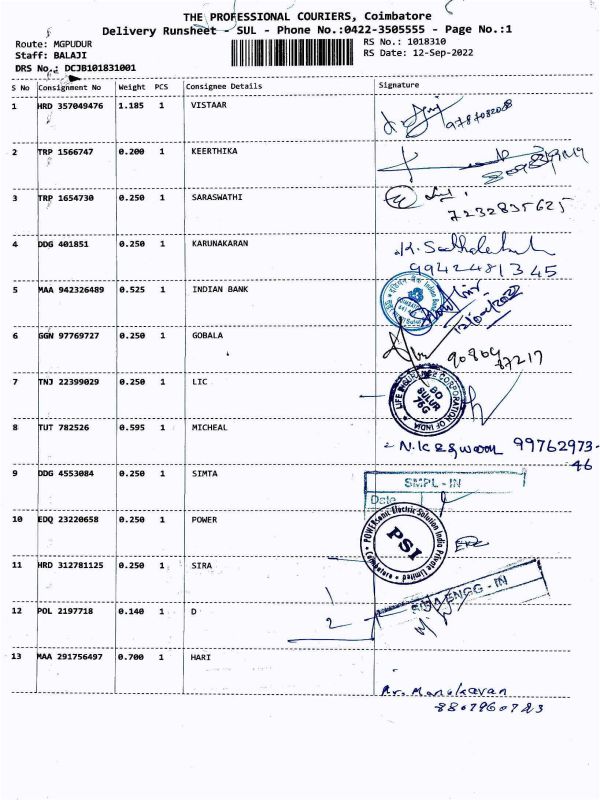 THE PROFESSIONAL COURIERS, Coimbatore
Delivery Runsheet - SUL - Phone No.:0422-3505555 - Page No.:1
Route: MGPUDUR
RS No.: 1018310
Staff: BALAJI
RS Date: 12-Sep-2022
DRS No.: DCJB101831001
S No Consignment No Weight PCS Consignee Details Signature
1 HRD 357049476 1.185 1 VISTAAR
2 TRP 1566747 0.200 1 KEERTHIKA
3 TRP 1654730 0.250 1 SARASWATHI
7232835625
4 DDG 401851 0.250 1 KARUNAKARAN
9942481345
5 MAA 942326489 0.525 1 INDIAN BANK
6 GGN 97769727 0.250 1 GOBALA
7 TNJ 22399029 0.250 1 LIC
LIFE INSURANCE CORPORATION OF INDIA
BO
SULUR
76G
8 TUT 782526 0.595 1 MICHEAL
99762973-
46
9 DDG 4553084 0.250 1 SIMTA
SMPL - IN
Date
10 EDQ 23220658 0.250 1 POWER
POWERsonic Electric Solution India Private Limited
Coimbatore
PSI
11 HRD 312781125 0.250 1 SIRA
ENGG - IN
12 POL 2197718 0.140 1 D
1
2
13 MAA 291756497 0.700 1 HARI